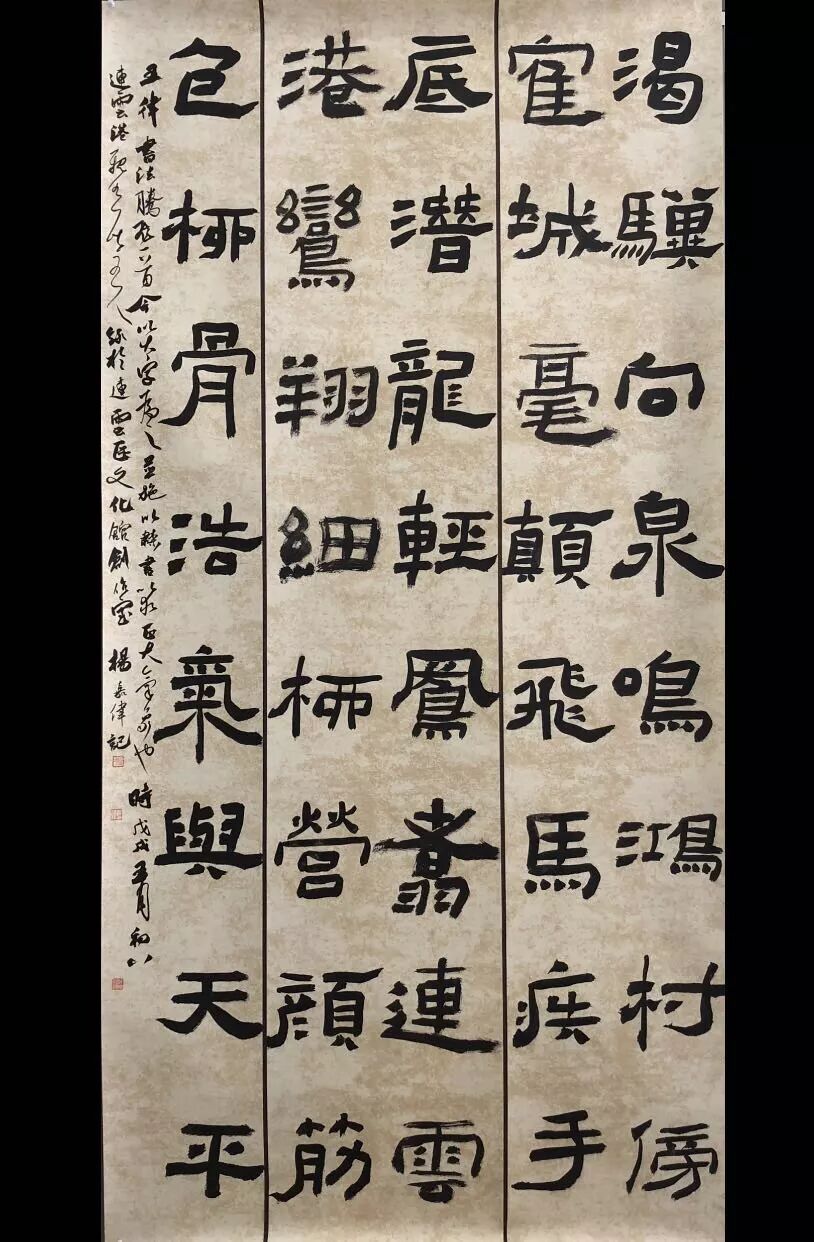 渴驥向泉鳴鴻村傍
寉城毫顛飛馬疾手
底潛龍輕鳳翥連雲
港鸞翔細柳營顏筋
包柳骨浩氣與天平
五律書法騰飛一首今以大字為之並施以隸書以正大氣象也時戊戌五月初八
連雲港於連雲區文化館創作室楊偉記